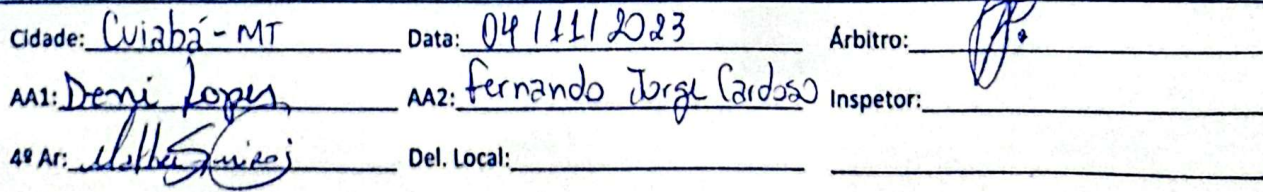 Cidade: Cuiabá - MT Data: 04/11/2023 Árbitro:
AA1: Deni Lopes AA2: Fernando Jorge Cardoso Inspetor:
4º Ar: Del. Local: